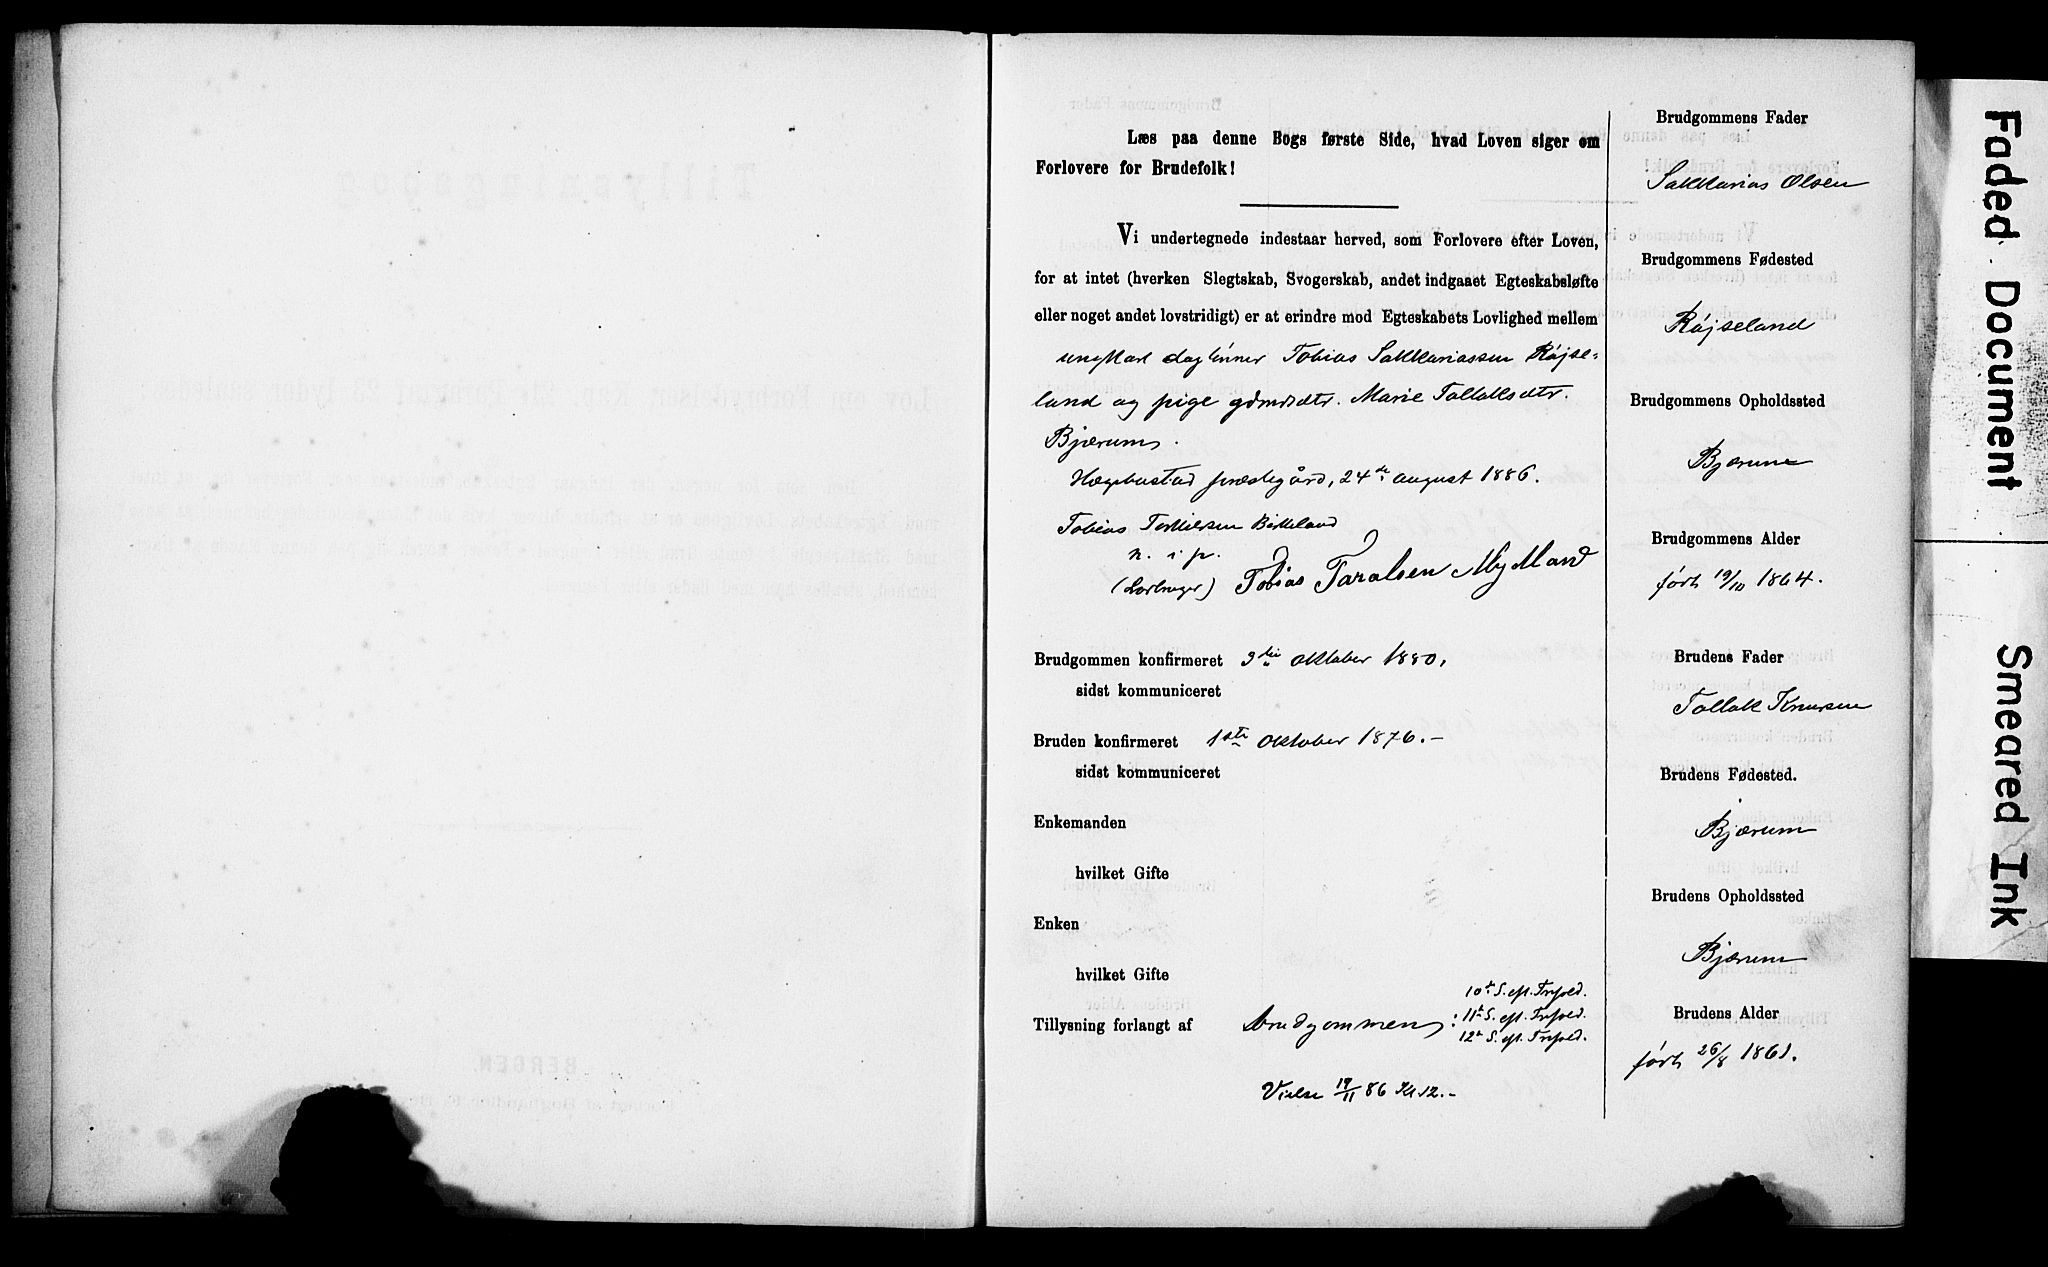 Læs paa denne Bogs første Side, hvad Loven siger om
Forlovere for Brudefolk!
Vi undertegnede indestaar herved, som Forlovere efter Loven,
for at intet (hverken Slegtskab, Svogerskab, andet indgaaet Egteskabsløfte
eller noget andet lovstridigt) er at erindre mod Egteskabets Lovlighed mellem
ungkarl daglønner Tobias Sakkariassen Røjse-
land og pige gdmdsdtr. Marie Tollaksdtr.
Bjærum.
Hægebostad prestegård, 24de august 1886.
Tobias Terkielsen Birkeland
n. i p.
Tobias Taralsen Mykland
Brudgommen konfirmeret 3die oktober 1880.
sidst kommuniceret
Bruden konfirmeret 1ste oktober 1876.-
sidst kommuniceret
Enkemanden
hvilket Gifte
Enken
hvilket Gifte
Tillysning forlangt af brudgommen:
10de S. eft. Trefold.
11te S. eft. Trefold.
12te S. eft. Trefold.
Vielse 19/11 86 Kl. 12.-
Brudgommens Fader
Sakkarias Olsen
Brudgommens Fødested
Røjseland
Brudgommens Opholdssted
Bjærum
Brudgommens Alder
født 19/10 1864.
Brudens Fader
Tollak Knudsen
Brudens Fødested.
Bjærum
Brudens Opholdssted
Bjærum
Brudens Alder
født 26/8 1861.
Faded Document
Smeared Ink